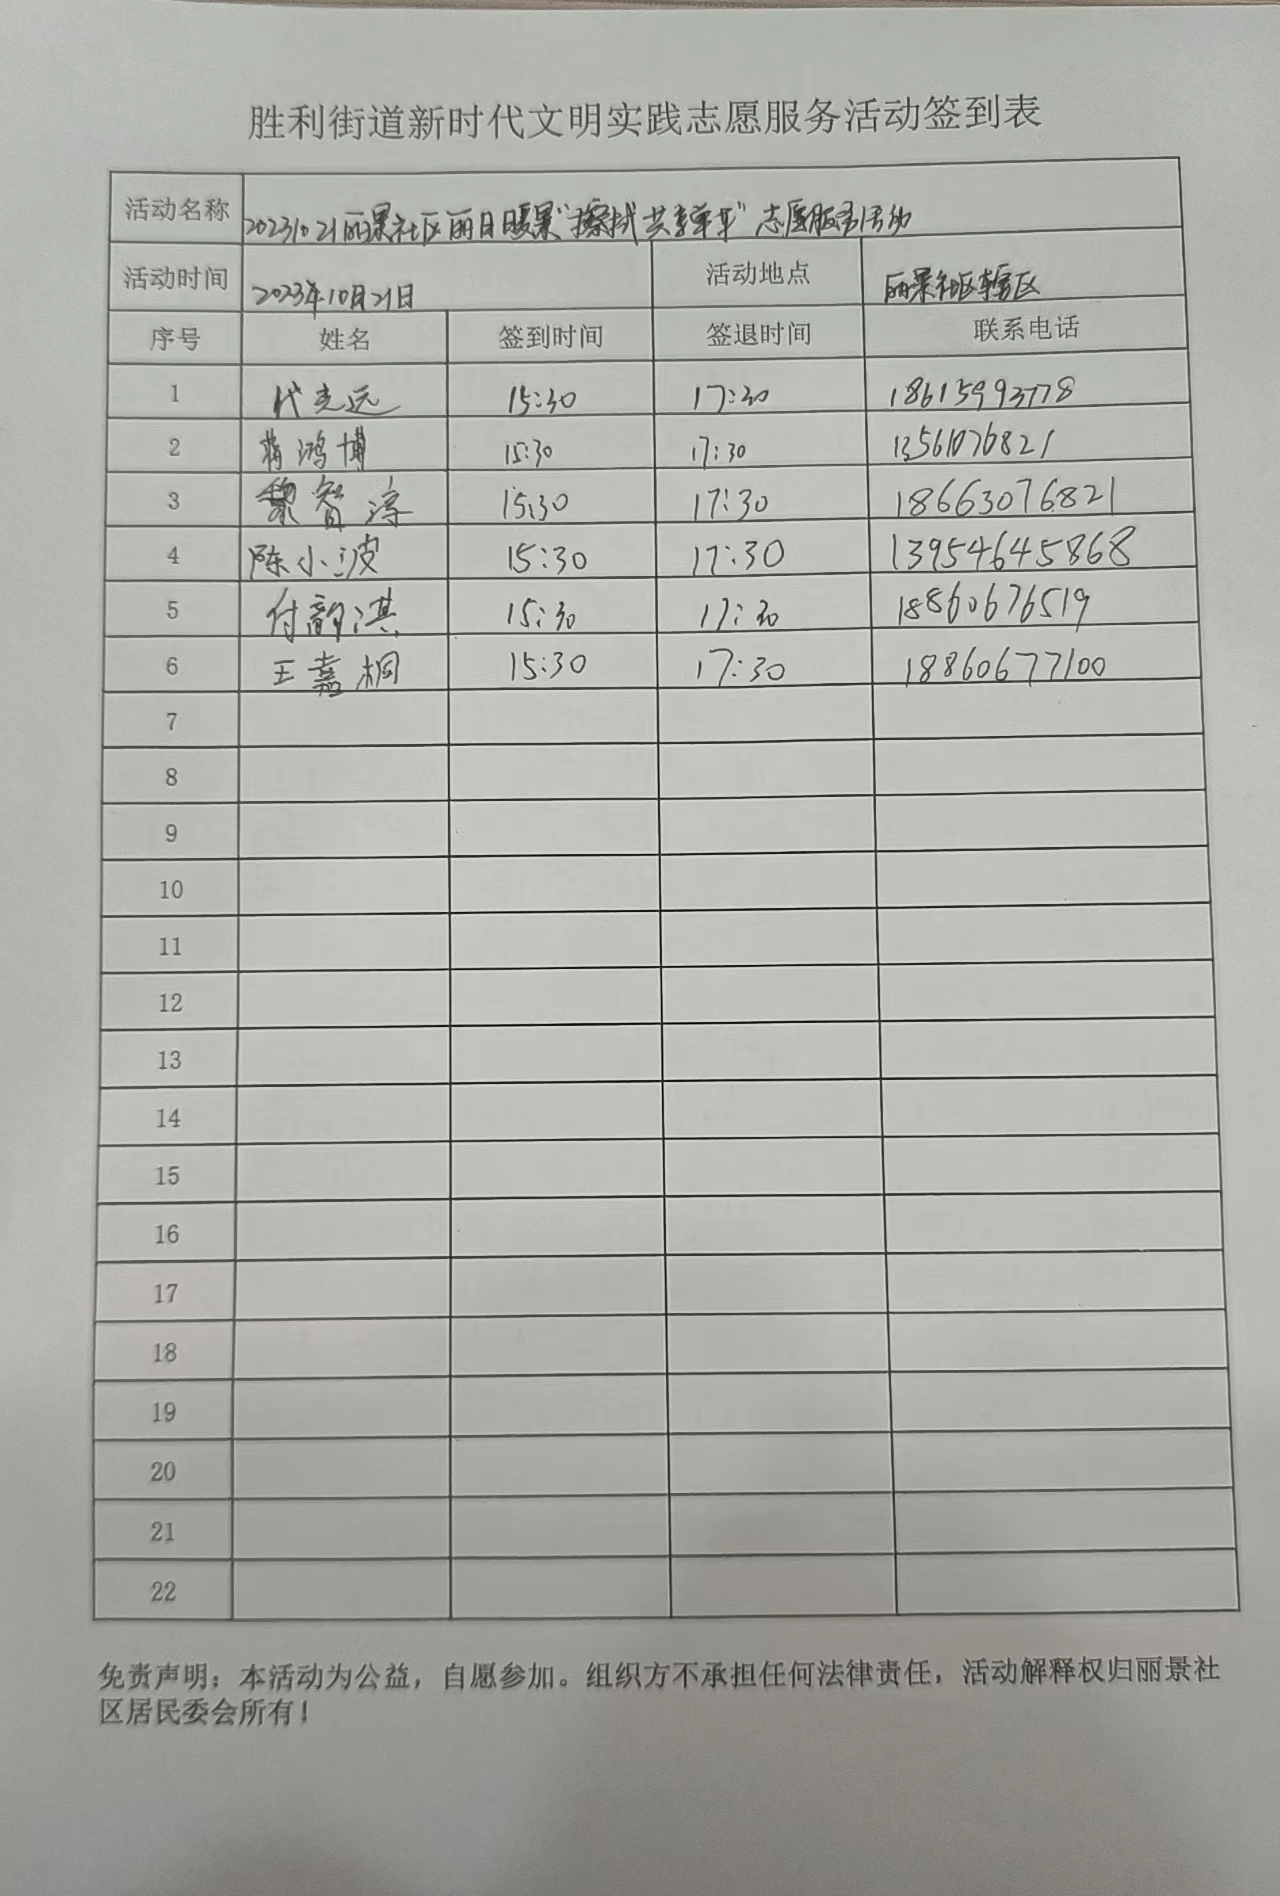 胜利街道新时代文明实践志愿服务活动签到表
活动名称 20231021丽景社区丽日暖景"擦拭共享单车"志愿服务活动
活动时间 2023年10月21日 活动地点 丽景社区辖区
序号 姓名 签到时间 签退时间 联系电话
1 代克远 15:30 17:30 18615993778
2 蒋鸿博 15:30 17:30 13561076821
3 黎智淳 15:30 17:30 18663076821
4 陈小波 15:30 17:30 13954645868
5 付韵淇 15:30 17:30 18860676519
6 王嘉桐 15:30 17:30 18860677100
7
8
9
10
11
12
13
14
15
16
17
18
19
20
21
22
免责声明：本活动为公益，自愿参加。组织方不承担任何法律责任，活动解释权归丽景社
区居民委会所有！